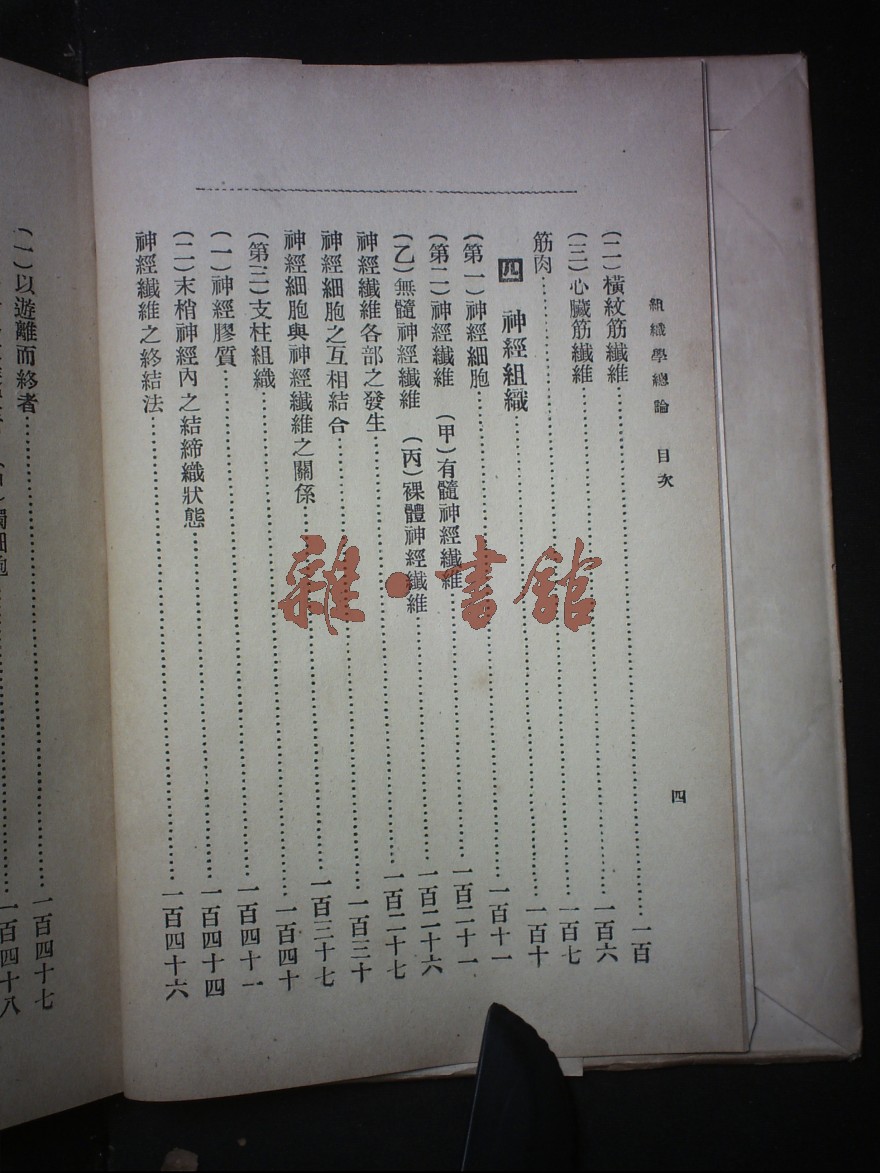 組織學總論 目次 四
(二)橫紋筋纖維……一百
(三)心臟筋纖維……一百六
筋肉……一百七
四 神經組織……一百十
(第一)神經細胞……一百十一
(第二)神經纖維 (甲)有髓神經纖維……一百二十一
(乙)無髓神經纖維 (丙)裸體神經纖維……一百二十六
神經纖維各部之發生……一百二十七
神經細胞之互相結合……一百三十
神經細胞與神經纖維之關係……一百三十七
(第三)支柱組織……一百四十
(一)神經膠質……一百四十一
(二)末梢神經內之結締織狀態……一百四十四
神經纖維之終結法……一百四十六
(一)以遊離而終者……一百四十七
觸細胞……一百四十八
雜·書館